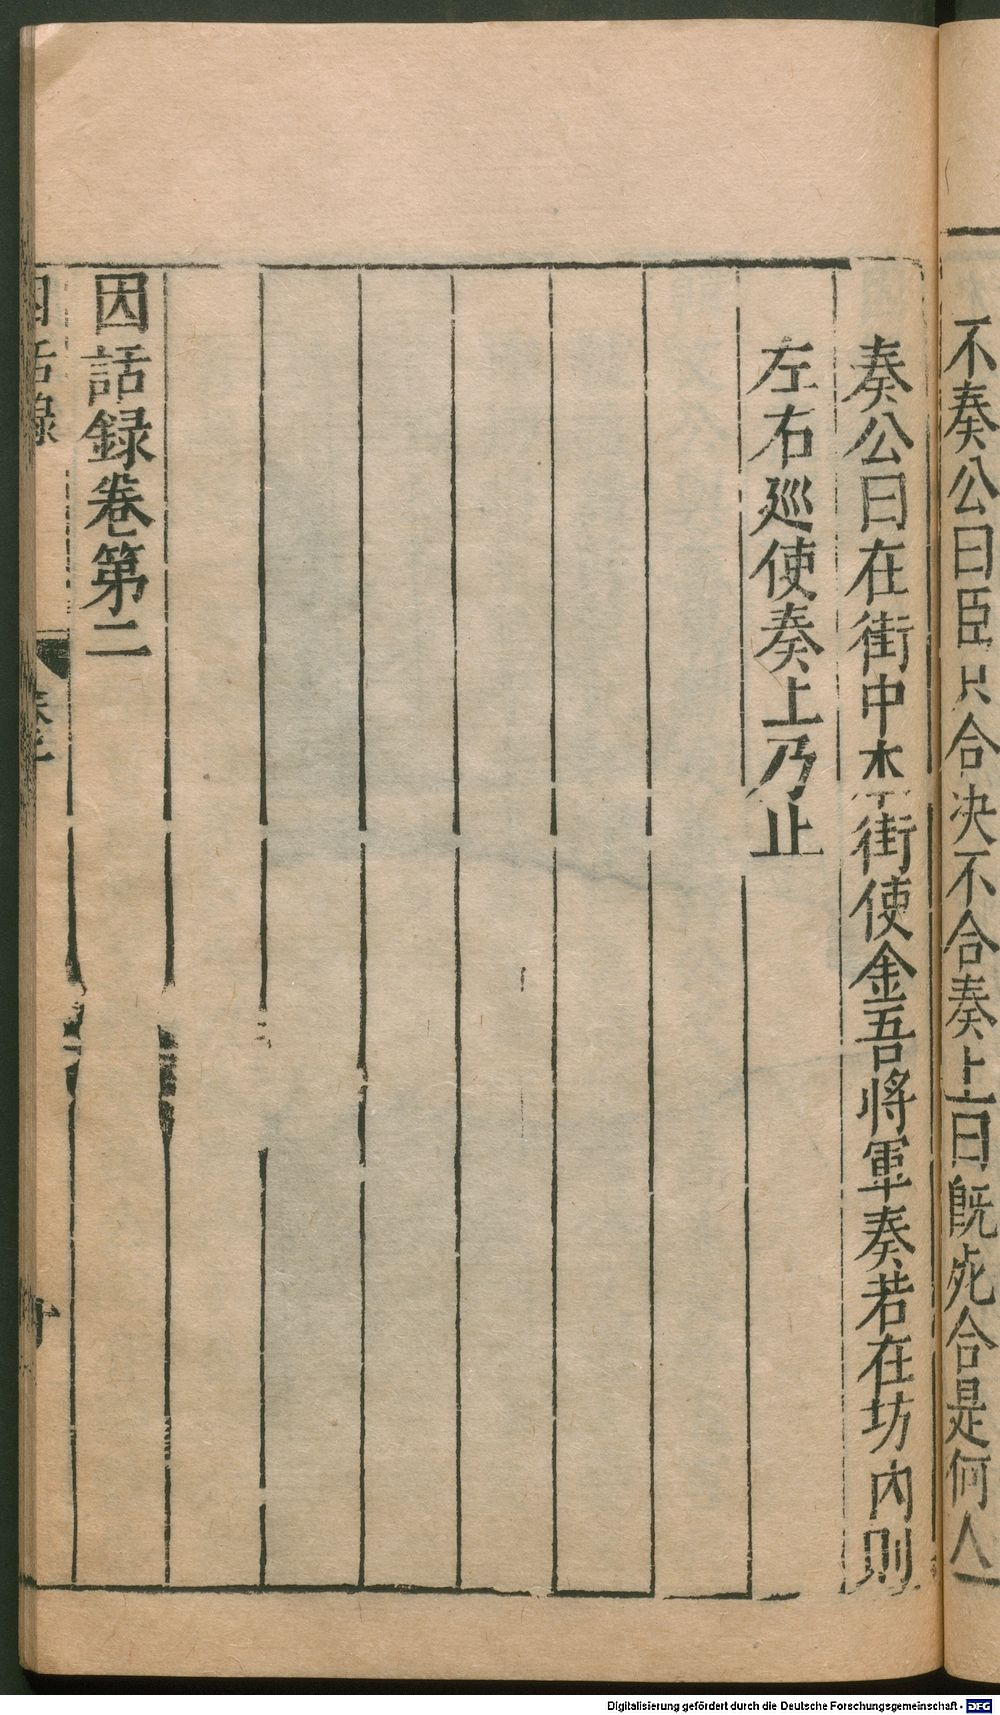 不奏公曰臣只合决不合奏上曰旣死合是何人
奏公曰在街中本街使金吾將軍奏若在坊內則
左右廵使奏上乃止
因話録卷第二
因話錄
卷之
十
Digitalisierung gefördert durch die Deutsche Forschungsgemeinschaft - DFG